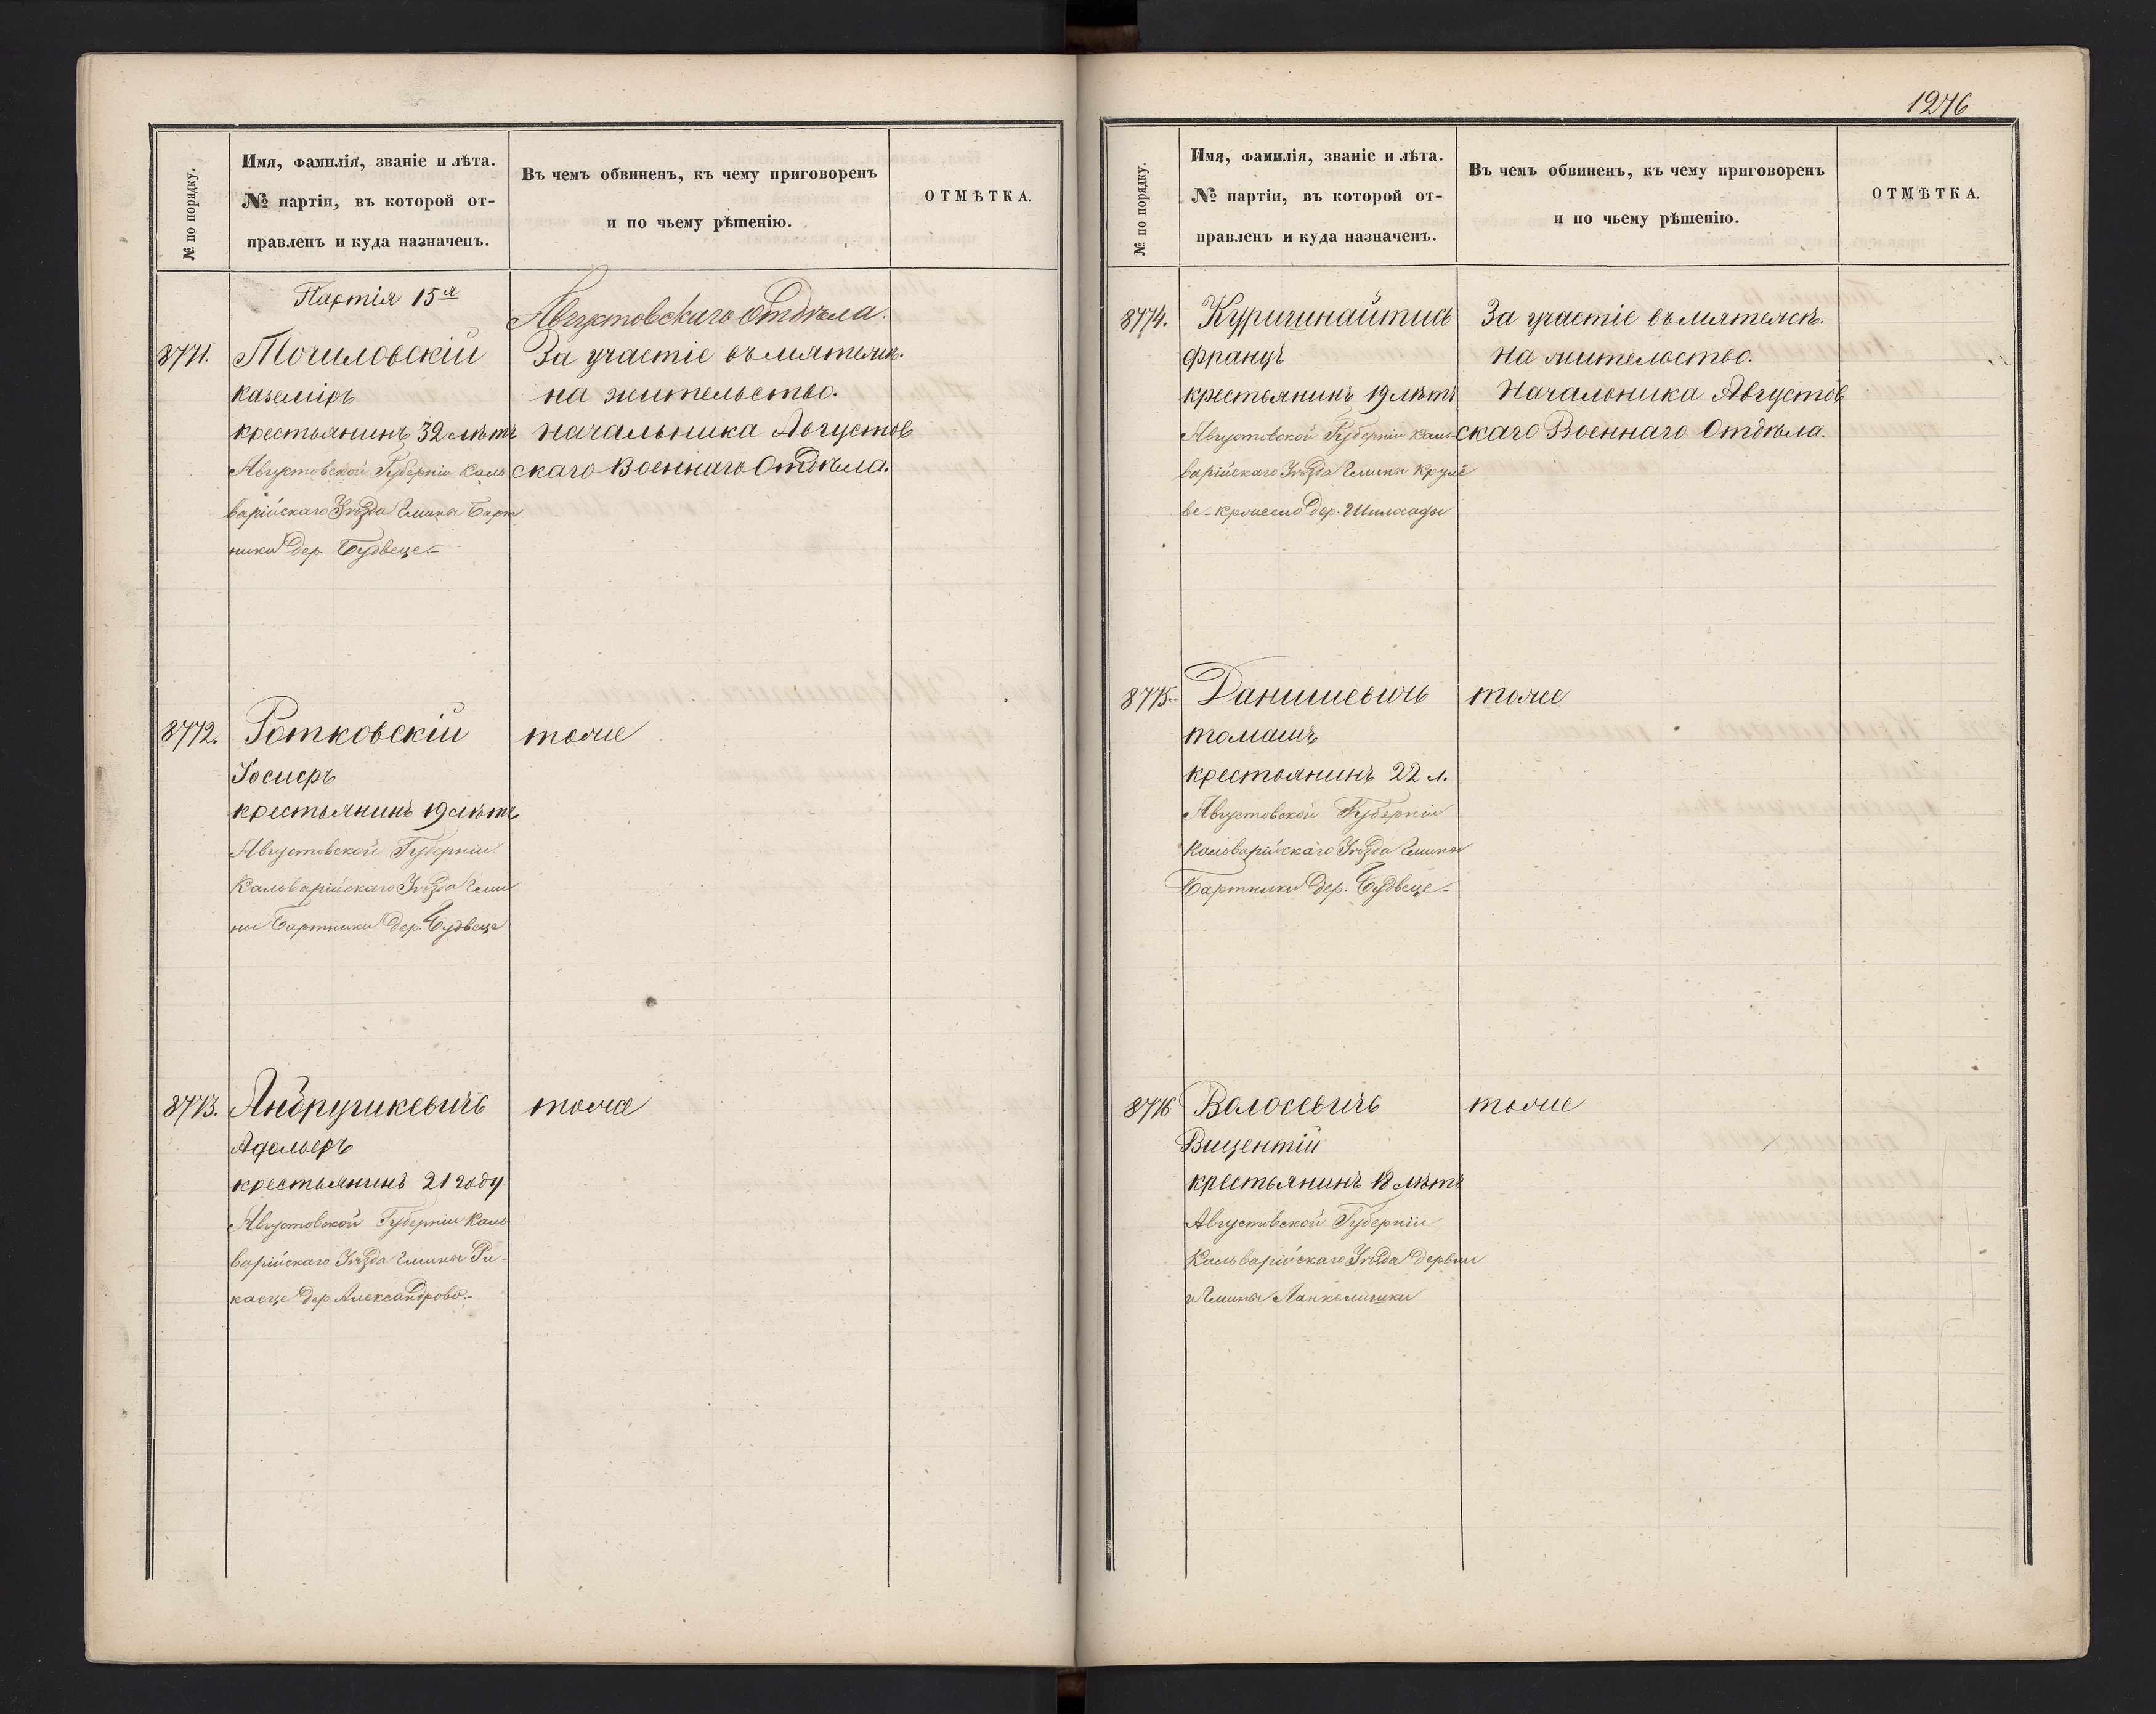 № по порядку.
Имя, фамилія, званіе и лѣта.
№ партіи, въ которой от-
правленъ и куда назначенъ.
Въ чемъ обвиненъ, къ чему приговоренъ
и по чьему рѣшенію.
ОТМѢТКА.
Партія 15я
Августовскаго Отдѣла.
8771.
Точиловскій
Каземіръ
крестьянинъ 32 лѣтъ
Августовской Губерніи Каль
варійскаго Уѣзда Гмины Барт
ники дер. Будвеце
За участіе въ мятежѣ.
на жительство.
Начальника Августов
скаго Военнаго Отдѣла.
8772.
Ротковскій
крестьянинъ 19 лѣтъ
Августовской Губерніи
Кальварійскаго Уѣзда Гми
ны Бартники дер. Будвеце
тоже
8773.
Андрушкевичъ
крестьянинъ 21 году
Августовской Губерніи Каль
варійскаго Уѣзда Гмины
дер Александрово
тоже
1276
№ по порядку.
Имя, фамилія, званіе и лѣта.
№ партіи, въ которой от-
правленъ и куда назначенъ.
Въ чемъ обвиненъ, къ чему приговоренъ
и по чьему рѣшенію.
ОТМѢТКА.
8774.
Францъ
крестьянинъ 19 лѣтъ
Августовской Губерніи Каль
варійскаго Уѣзда Гмины Круле
дер.
За участіе въ мятежѣ.
на жительство.
Начальника Августов
скаго Военнаго Отдѣла.
8775.
Данилевичъ
Томашъ
крестьянинъ 22 л.
Августовской Губерніи
Кальварійскаго Уѣзда Гмины
Бартники дер. Будвеце
тоже
8776
Волосевичъ
Вицентій
крестьянинъ 18 лѣтъ
Августовской Губерніи
Кальварійскаго Уѣзда деревни
и Гмины Ланкелишки
тоже